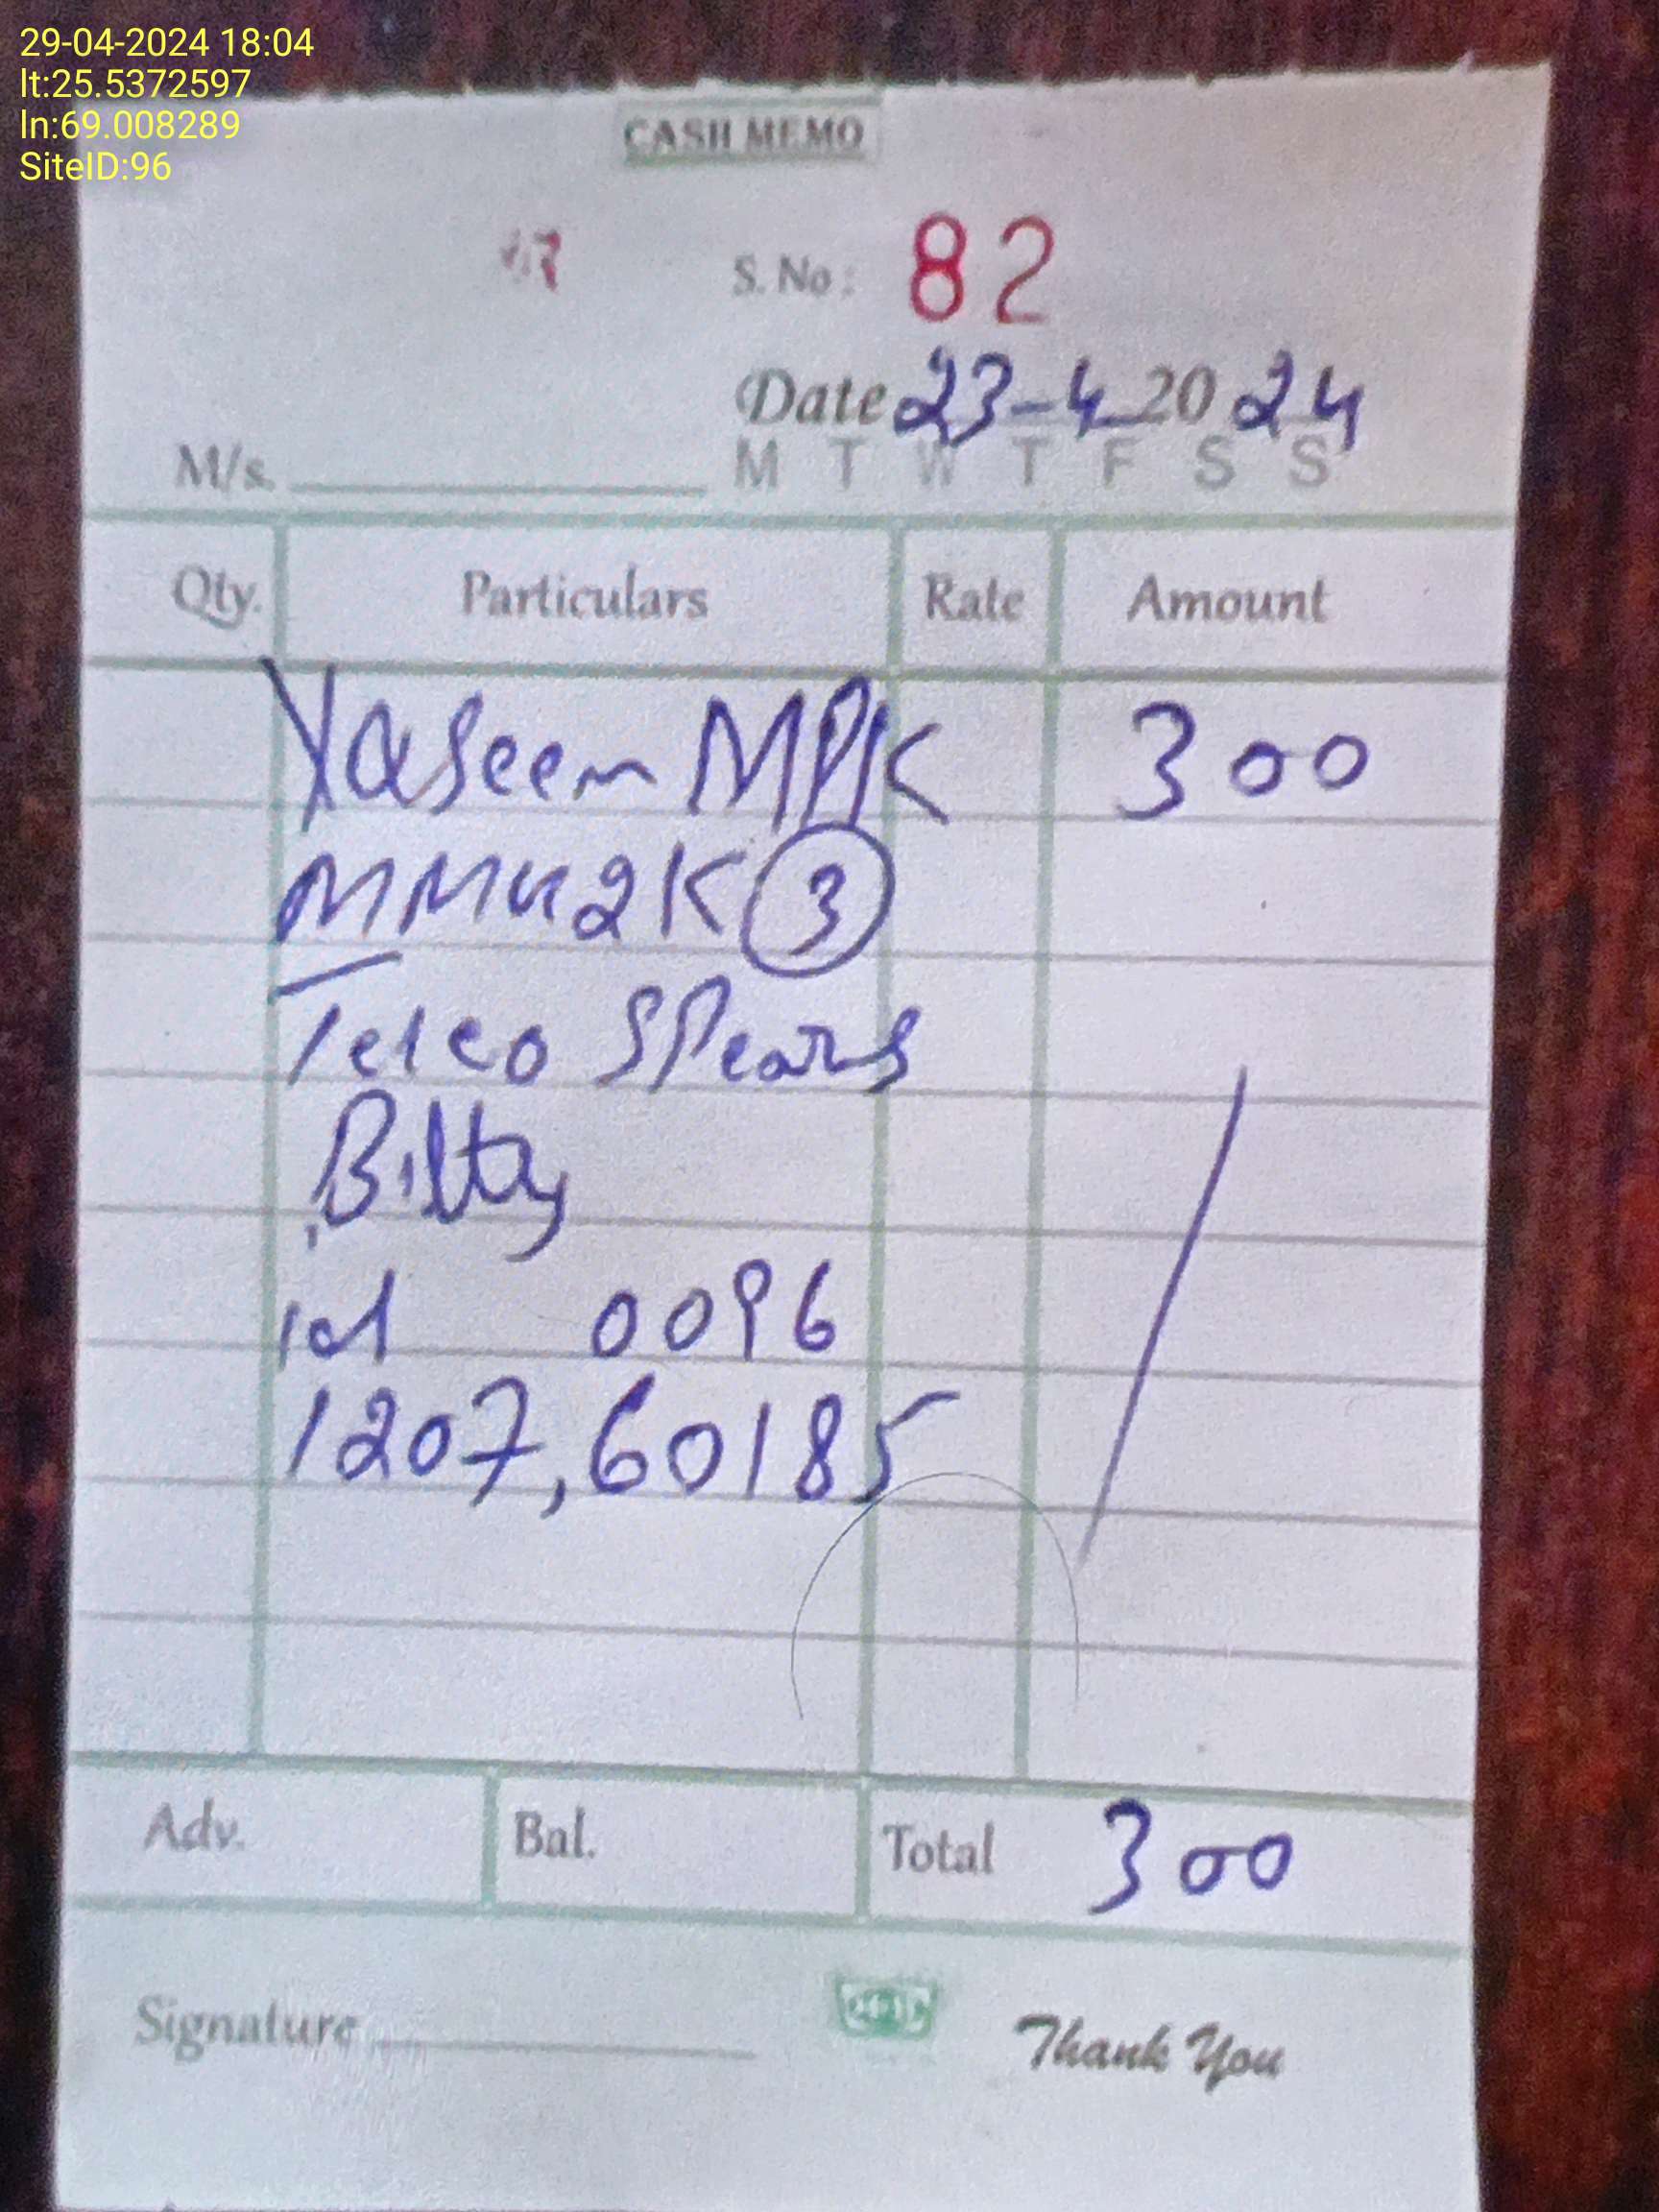 29-04-2024 18:04
lt:25.5372597
ln:69.008289
SiteID:96
CASH MEMO
S. No: 82
Date 23-4-2024
M/s. M T W T F S S
Qty. Particulars Rate Amount
Yaseen MPK 300
3
Telco SPears
Bilty
id 0096
1207,60185
Adv. Bal. Total 300
Signature Thank You